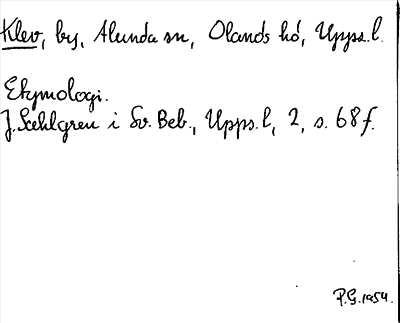 Klev, by, Alunda sn, Olands hd, Upps. l.
Etymologi.
J. Sahlgren i Sv. Beb., Upps. l, 2, s. 68 f.
P.G. 1954.